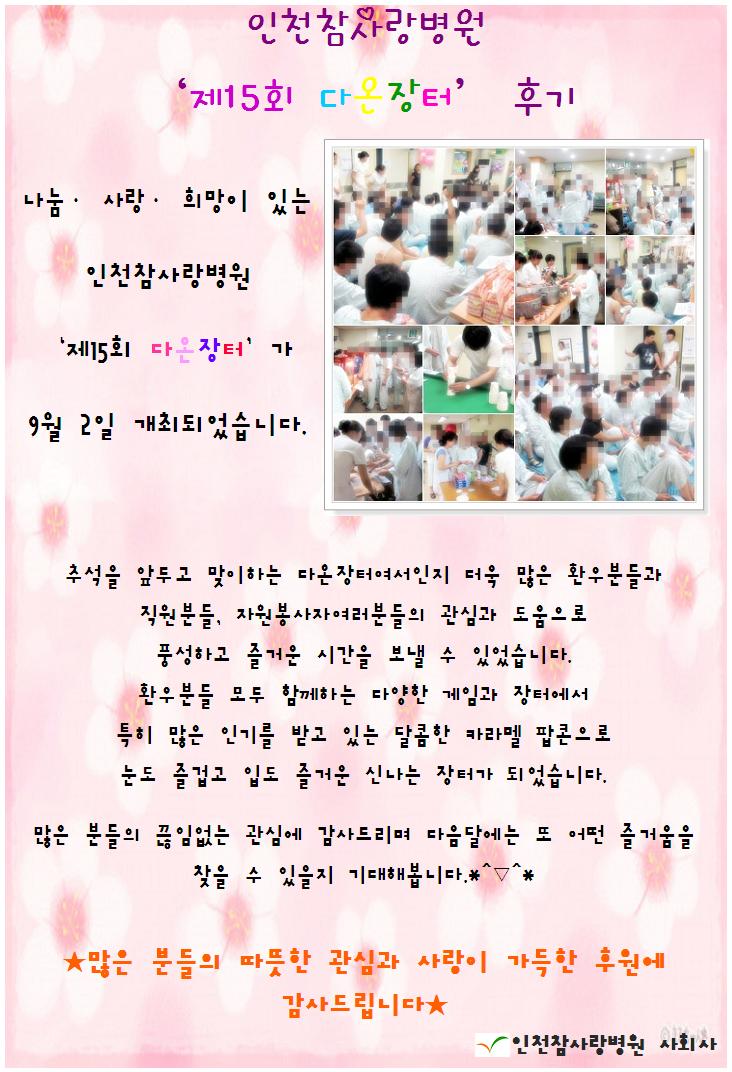 인천참사랑병원
‘제15회 다온장터’ 후기
나눔· 사랑· 희망이 있는
인천참사랑병원
‘제15회 다온장터’ 가
9월 2일 개최되었습니다.
추석을 앞두고 맞이하는 다온장터여서인지 더욱 많은 환우분들과
직원분들, 자원봉사자여러분들의 관심과 도움으로
풍성하고 즐거운 시간을 보낼 수 있었습니다.
환우분들 모두 함께하는 다양한 게임과 장터에서
특히 많은 인기를 받고 있는 달콤한 카라멜 팝콘으로
눈도 즐겁고 입도 즐거운 신나는 장터가 되었습니다.
많은 분들의 끊임없는 관심에 감사드리며 다음달에는 또 어떤 즐거움을
찾을 수 있을지 기대해봅니다.*^▽^*
★많은 분들의 따뜻한 관심과 사랑이 가득한 후원에
감사드립니다★
인천참사랑병원 사회사